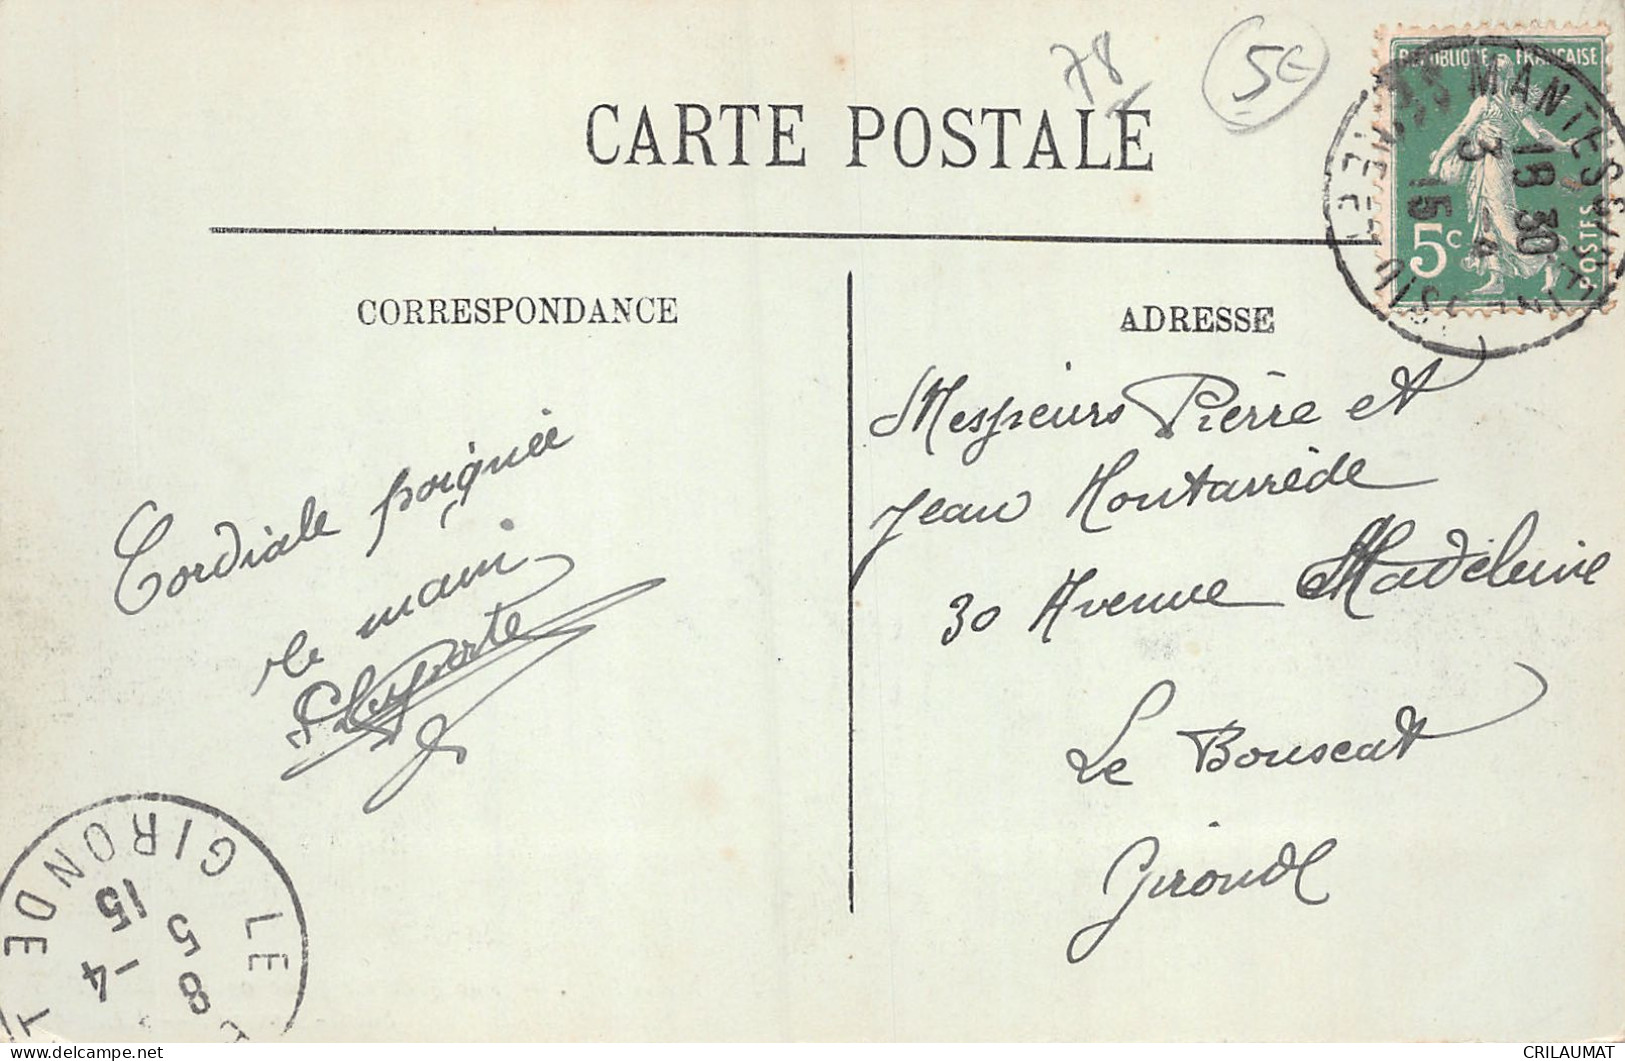 78
5€
CARTE POSTALE
RÉPUBLIQUE FRANÇAISE
5c
POSTES
MANTES S/ SEINE
18 30
3 -4
15
CORRESPONDANCE
ADRESSE
Cordiale poignée
de main
Messieurs Pierre et
Jean Montarrède
30 Avenue Madeleine
Le Bouscat
Gironde
LE
GIRONDE
8
5 -4
15
CRILAUMAT